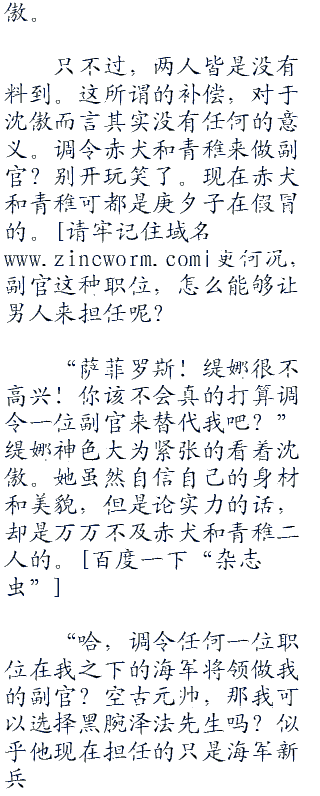 傲。
只不过，两人皆是没有
料到。这所谓的补偿，对于
沈傲而言其实没有任何的意
义。调令赤犬和青稚来做副
官？别开玩笑了。现在赤犬
和青稚可都是庚夕子在假冒
的。[请牢记住域名
www.zincworm.com|更何况，
副官这种职位，怎么能够让
男人来担任呢？
“萨菲罗斯！缇娜很不
高兴！你该不会真的打算调
令一位副官来替代我吧？”
缇娜神色大为紧张的看着沈
傲。她虽然自信自己的身材
和美貌，但是论实力的话，
却是万万不及赤犬和青稚二
人的。[百度一下“杂志
虫”]
“哈，调令任何一位职
位在我之下的海军将领做我
的副官？空古元帅，那我可
以选择黑腕泽法先生吗？似
乎他现在担任的只是海军新
兵